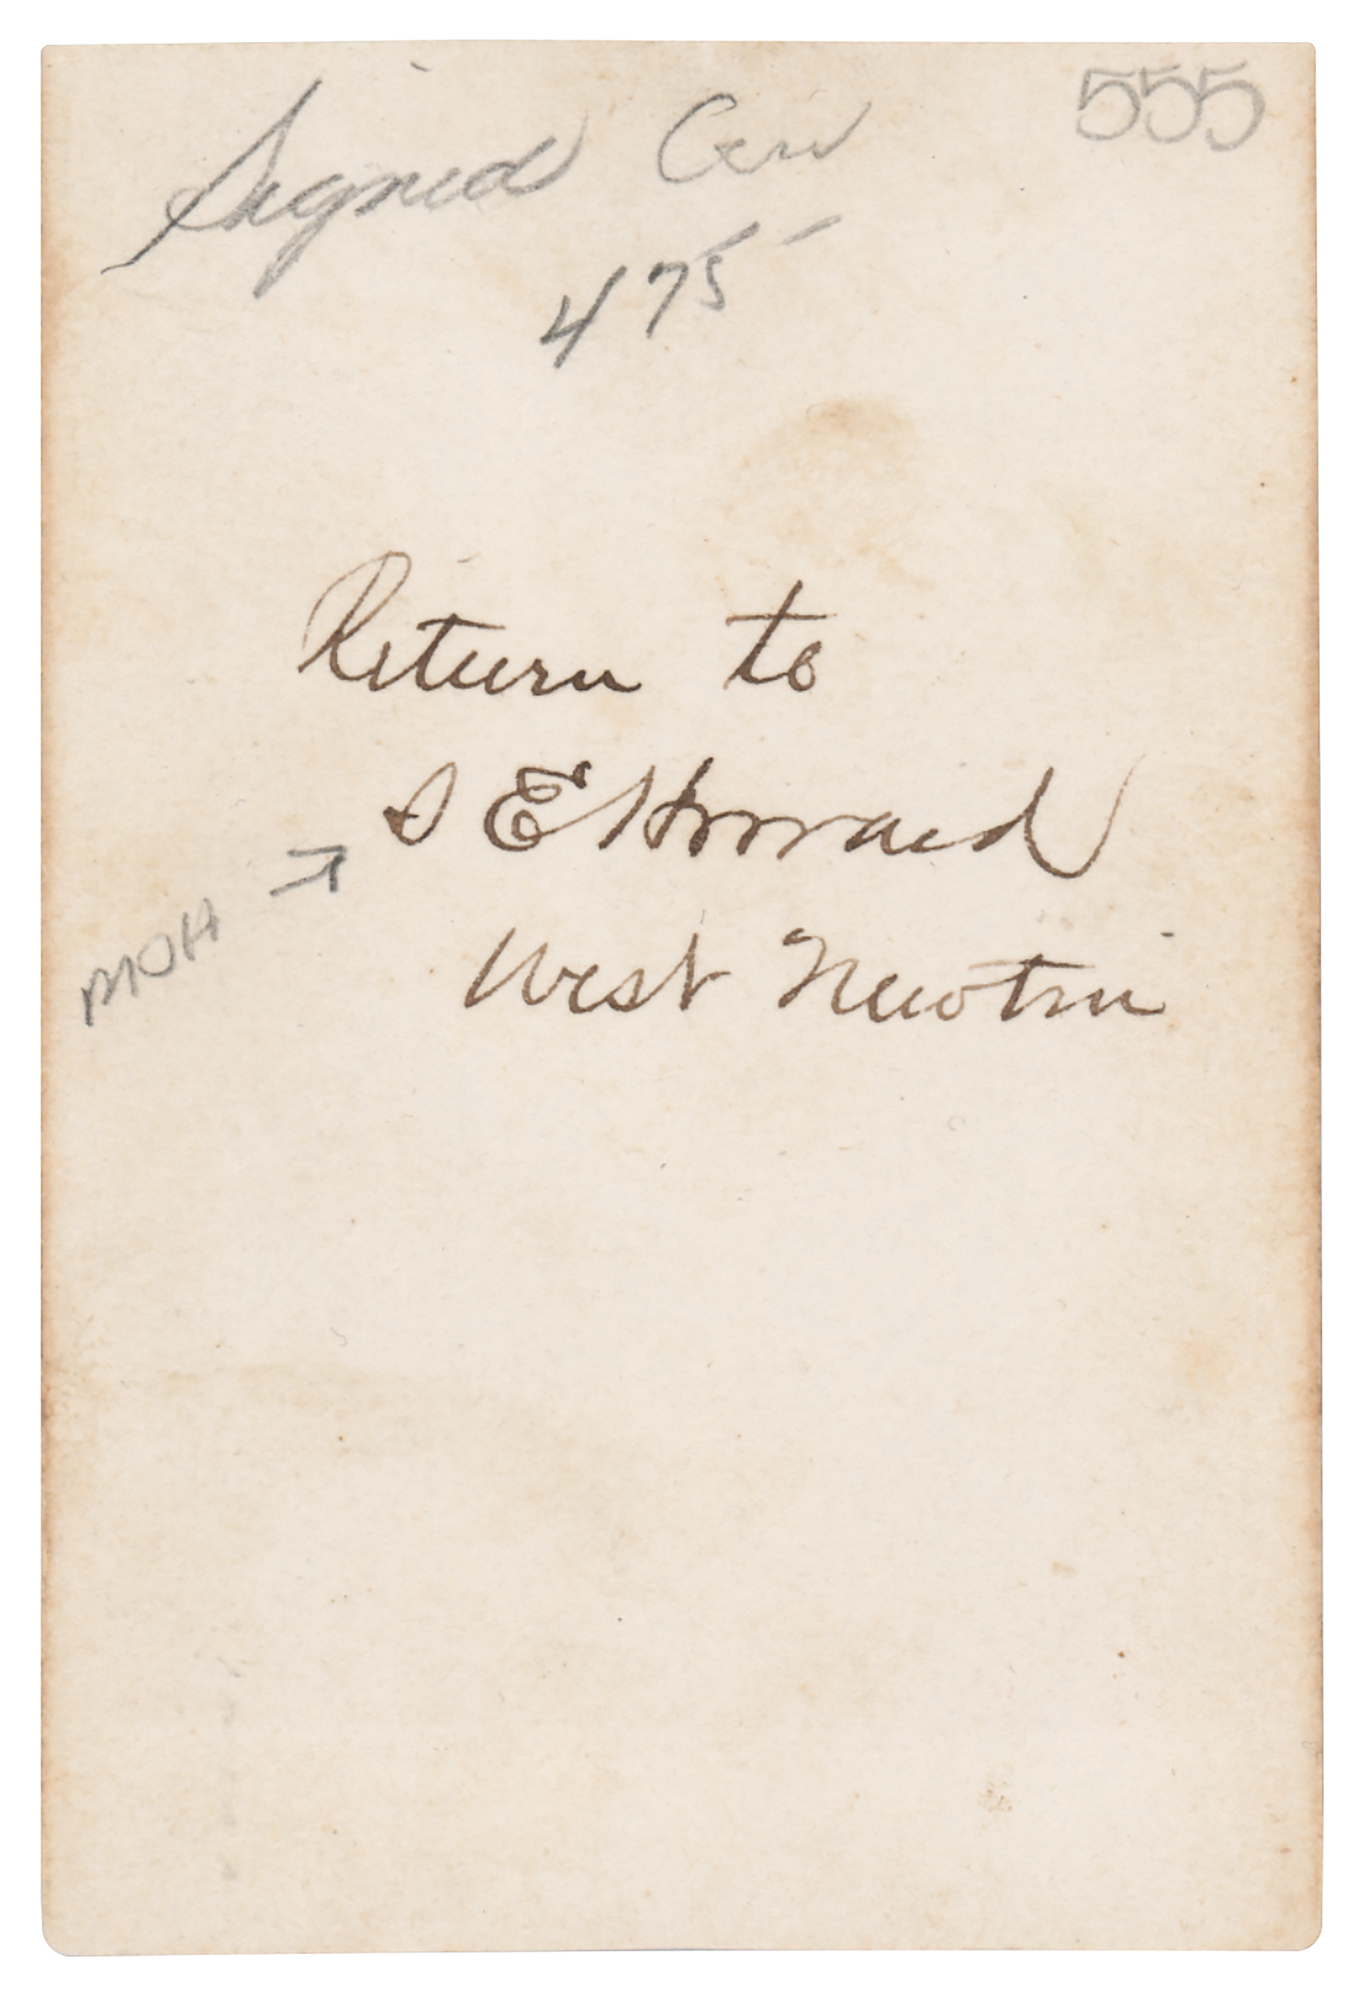 555
Signed CDV
475-
Return to
S E Howard
MOH →
West Newton